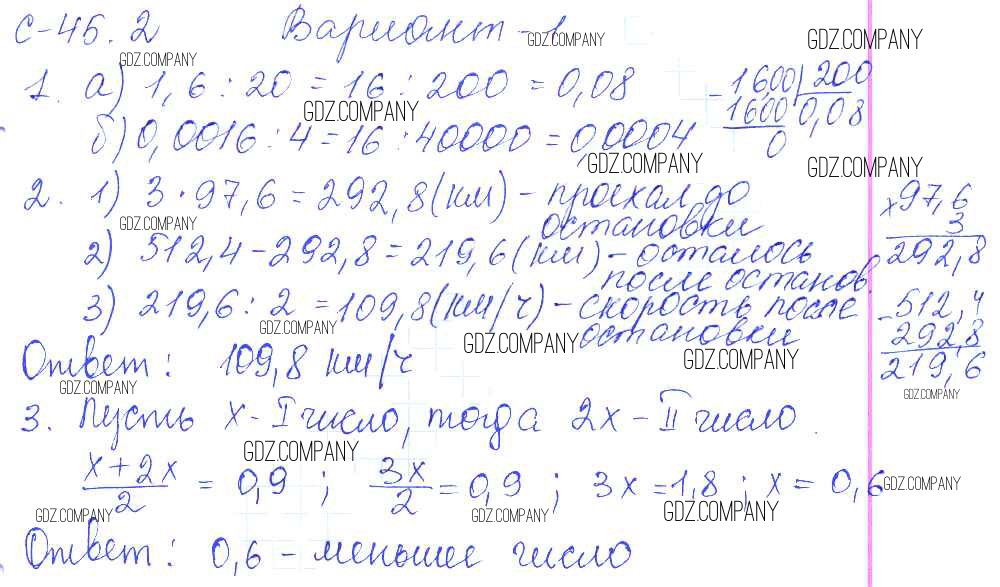 С-45.2 Вариант-1
GDZ.COMPANY GDZ.COMPANY GDZ.COMPANY
1. а) 1,6 : 20 = 16 : 200 = 0,08
- 1600 | 200
GDZ.COMPANY
1600 0,08
б) 0,0016 : 4 = 16 : 40000 = 0,0004
0
GDZ.COMPANY GDZ.COMPANY
2. 1) 3 · 97,6 = 292,8 (км) - проехал до
× 97,6
GDZ.COMPANY
остановки
3
2) 512,4 - 292,8 = 219,6 (км) - осталось
292,8
после останов.
3) 219,6 : 2 = 109,8 (км/ч) - скорость после
- 512,4
GDZ.COMPANY
остановки
292,8
GDZ.COMPANY GDZ.COMPANY
Ответ: 109,8 км/ч
219,6
GDZ.COMPANY GDZ.COMPANY
3. Пусть х - I число, тогда 2х - II число.
GDZ.COMPANY
х + 2х / 2 = 0,9 ; 3х / 2 = 0,9 ; 3х = 1,8 ; х = 0,6
GDZ.COMPANY
GDZ.COMPANY GDZ.COMPANY GDZ.COMPANY
Ответ: 0,6 - меньшее число